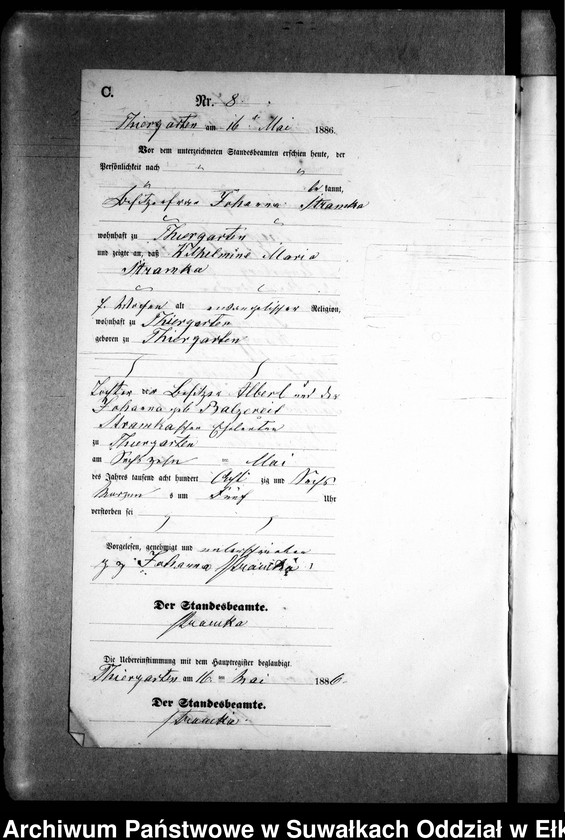 C.
Nr. 8
Thiergarten am 16 Mai 1886.
Vor dem unterzeichneten Standesbeamten erschien heute, der
Persönlichkeit nach
bekannt,
Besitzerfrau Johanna Stramka
wohnhaft zu Thiergarten
und zeigte an, daß Wilhelmine Maria
Stramka
7 Wochen alt evangelischer Religion,
wohnhaft zu Thiergarten
geboren zu Thiergarten
Tochter der Besitzer Albert und der
Johanna geb Balzereit
Stramkaschen Eheleuten
zu Thiergarten
am Sechszehn ten Mai
des Jahres tausend acht hundert Acht zig und Sechs
Morgens um Fünf Uhr
verstorben sei
Vorgelesen, genehmigt und unterschrieben
gez Johanna Stramka
Der Standesbeamte.
Stramka
Die Uebereinstimmung mit dem Hauptregister beglaubigt.
Thiergarten am 16 ten Mai 1886.
Der Standesbeamte.
Stramka
Archiwum Państwowe w Suwałkach Oddział w Ełk